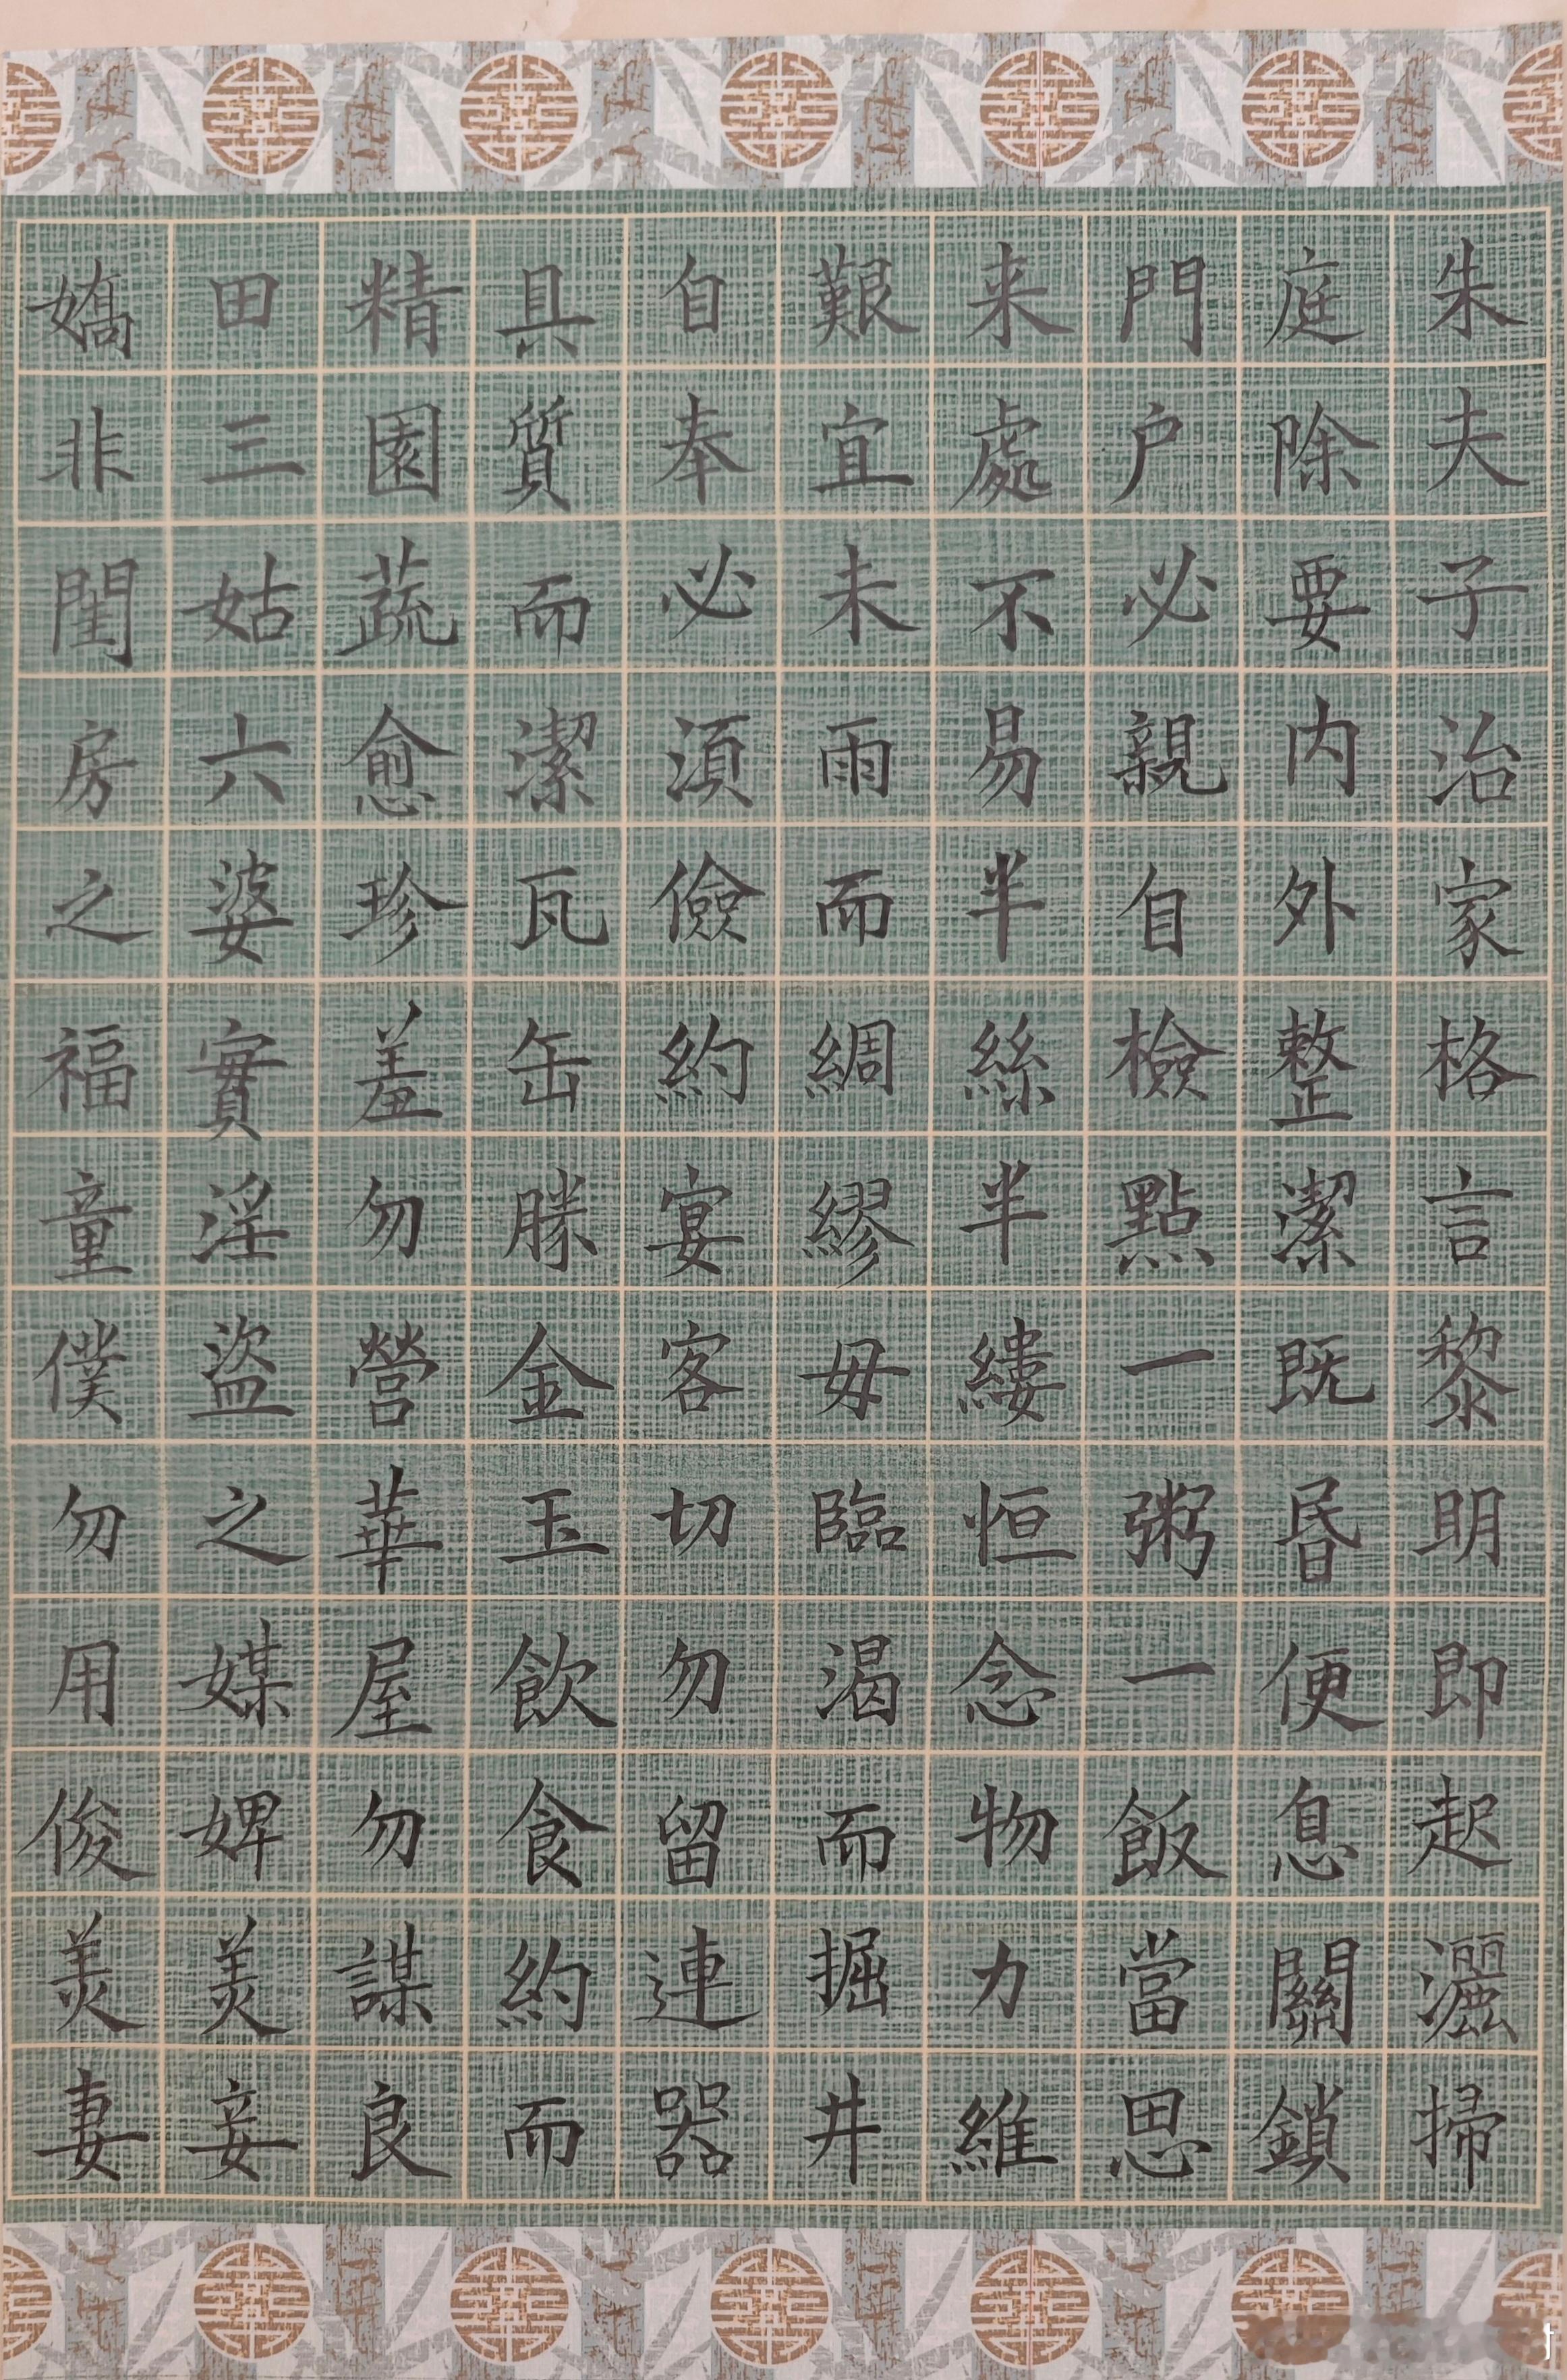 朱夫子治家格言黎明即起灑掃
庭除要内外整潔既昬便息關鎖
門户必親自檢點一粥一飯當思
来處不易半絲半縷恒念物力維
艱宜未雨而綢繆毋臨渴而掘井
自奉必須儉約宴客切勿留連器
具質而潔瓦缶勝金玉飲食約而
精園蔬愈珍羞勿營華屋勿謀良
田三姑六婆實淫盗之媒婢美妾
嬌非閨房之福童僕勿用俊美妻